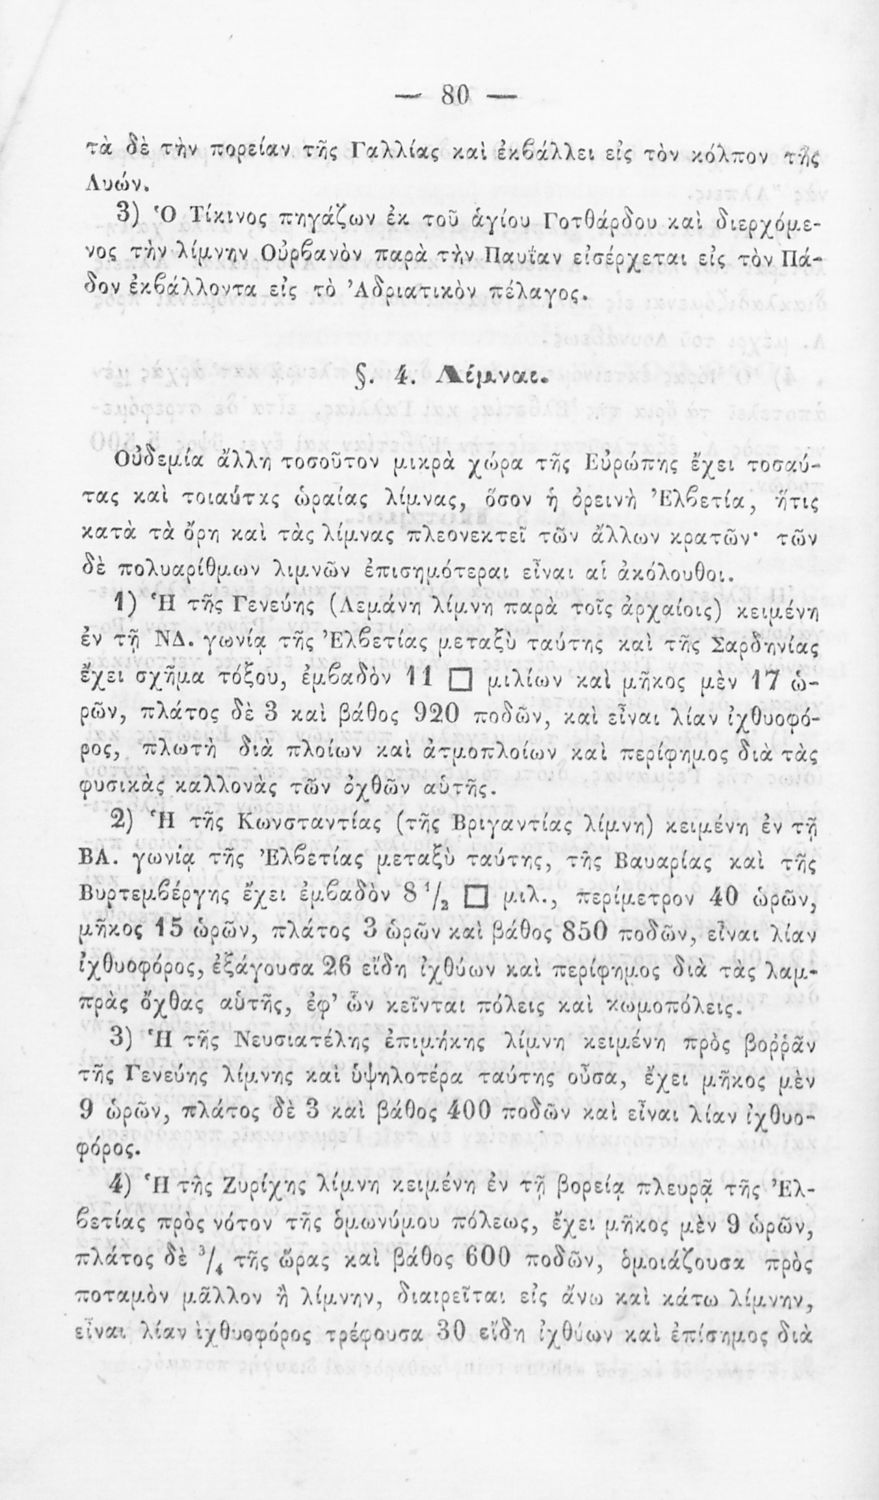 — 80 —
τὰ δὲ τὴν πορείαν τῆς Γαλλίας καὶ ἐκβάλλει εἰς τὸν κόλπον τῆς
Λυών.
3) Ὁ Τίκινος πηγάζων ἐκ τοῦ ἁγίου Γοτθάρδου καὶ διερχόμε-
νος τὴν λίμνην Οὐρβανὸν παρὰ τὴν Παυΐαν εἰσέρχεται εἰς τὸν Πά-
δον ἐκβάλλοντα εἰς τὸ Ἀδριατικὸν πέλαγος.
§. 4. Λίμναι.
Οὐδεμία ἄλλη τοσοῦτον μικρὰ χώρα τῆς Εὐρώπης ἔχει τοσαύ-
τας καὶ τοιαύτας ὡραίας λίμνας, ὅσον ἡ ὀρεινὴ Ἑλβετία, ἥτις
κατὰ τὰ ὄρη καὶ τὰς λίμνας πλεονεκτεῖ τῶν ἄλλων κρατῶν· τῶν
δὲ πολυαρίθμων λιμνῶν ἐπισημότεραι εἶναι αἱ ἀκόλουθοι.
1) Ἡ τῆς Γενεύης (Λεμάνη λίμνη παρὰ τοῖς ἀρχαίοις) κειμένη
ἐν τῇ ΝΔ. γωνίᾳ τῆς Ἑλβετίας μεταξὺ ταύτης καὶ τῆς Σαρδηνίας
ἔχει σχῆμα τόξου, ἐμβαδὸν 11 □ μιλίων καὶ μῆκος μὲν 17 ὡ-
ρῶν, πλάτος δὲ 3 καὶ βάθος 920 ποδῶν, καὶ εἶναι λίαν ἰχθυοφό-
ρος, πλωτὴ διὰ πλοίων καὶ ἀτμοπλοίων καὶ περίφημος διὰ τὰς
φυσικὰς καλλονὰς τῶν ὀχθῶν αὑτῆς.
2) Ἡ τῆς Κωνσταντίας (τῆς Βριγαντίας λίμνη) κειμένη ἐν τῇ
ΒΑ. γωνίᾳ τῆς Ἑλβετίας μεταξὺ ταύτης, τῆς Βαυαρίας καὶ τῆς
Βυρτεμβέργης ἔχει ἐμβαδὸν 8 1/2 □ μιλ., περίμετρον 40 ὡρῶν,
μῆκος 15 ὡρῶν, πλάτος 3 ὡρῶν καὶ βάθος 850 ποδῶν, εἶναι λίαν
ἰχθυοφόρος, ἐξάγουσα 26 εἴδη ἰχθύων καὶ περίφημος διὰ τὰς λαμ-
πρὰς ὄχθας αὑτῆς, ἐφ’ ὧν κεῖνται πόλεις καὶ κωμοπόλεις.
3) Ἡ τῆς Νευσιατέλης ἐπιμήκης λίμνη κειμένη πρὸς βοῤῥᾶν
τῆς Γενεύης λίμνης καὶ ὑψηλοτέρα ταύτης οὖσα, ἔχει μῆκος μὲν
9 ὡρῶν, πλάτος δὲ 3 καὶ βάθος 400 ποδῶν καὶ εἶναι λίαν ἰχθυο-
φόρος.
4) Ἡ τῆς Ζυρίχης λίμνη κειμένη ἐν τῇ βορείᾳ πλευρᾷ τῆς Ἑλ-
βετίας πρὸς νότον τῆς ὁμωνύμου πόλεως, ἔχει μῆκος μὲν 9 ὡρῶν,
πλάτος δὲ 3/4 τῆς ὥρας καὶ βάθος 600 ποδῶν, ὁμοιάζουσα πρὸς
ποταμὸν μᾶλλον ἢ λίμνην, διαιρεῖται εἰς ἄνω καὶ κάτω λίμνην,
εἶναι λίαν ἰχθυοφόρος τρέφουσα 30 εἴδη ἰχθύων καὶ ἐπίσημος διὰ